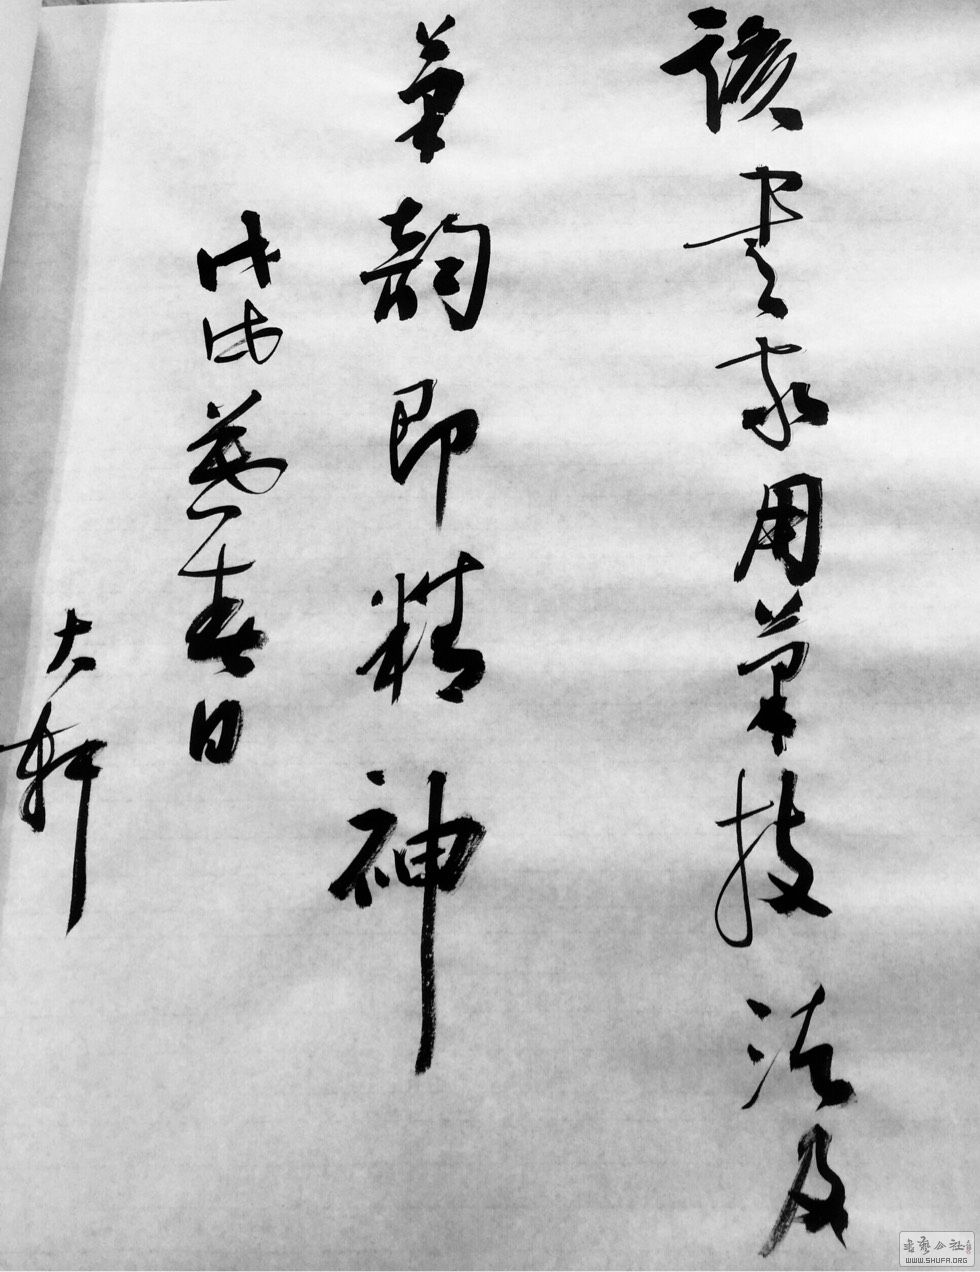 该書家用筆技法及
筆韵即精神
戊戌暮春日
大軒
書藝公社
WWW.SHUFA.ORG